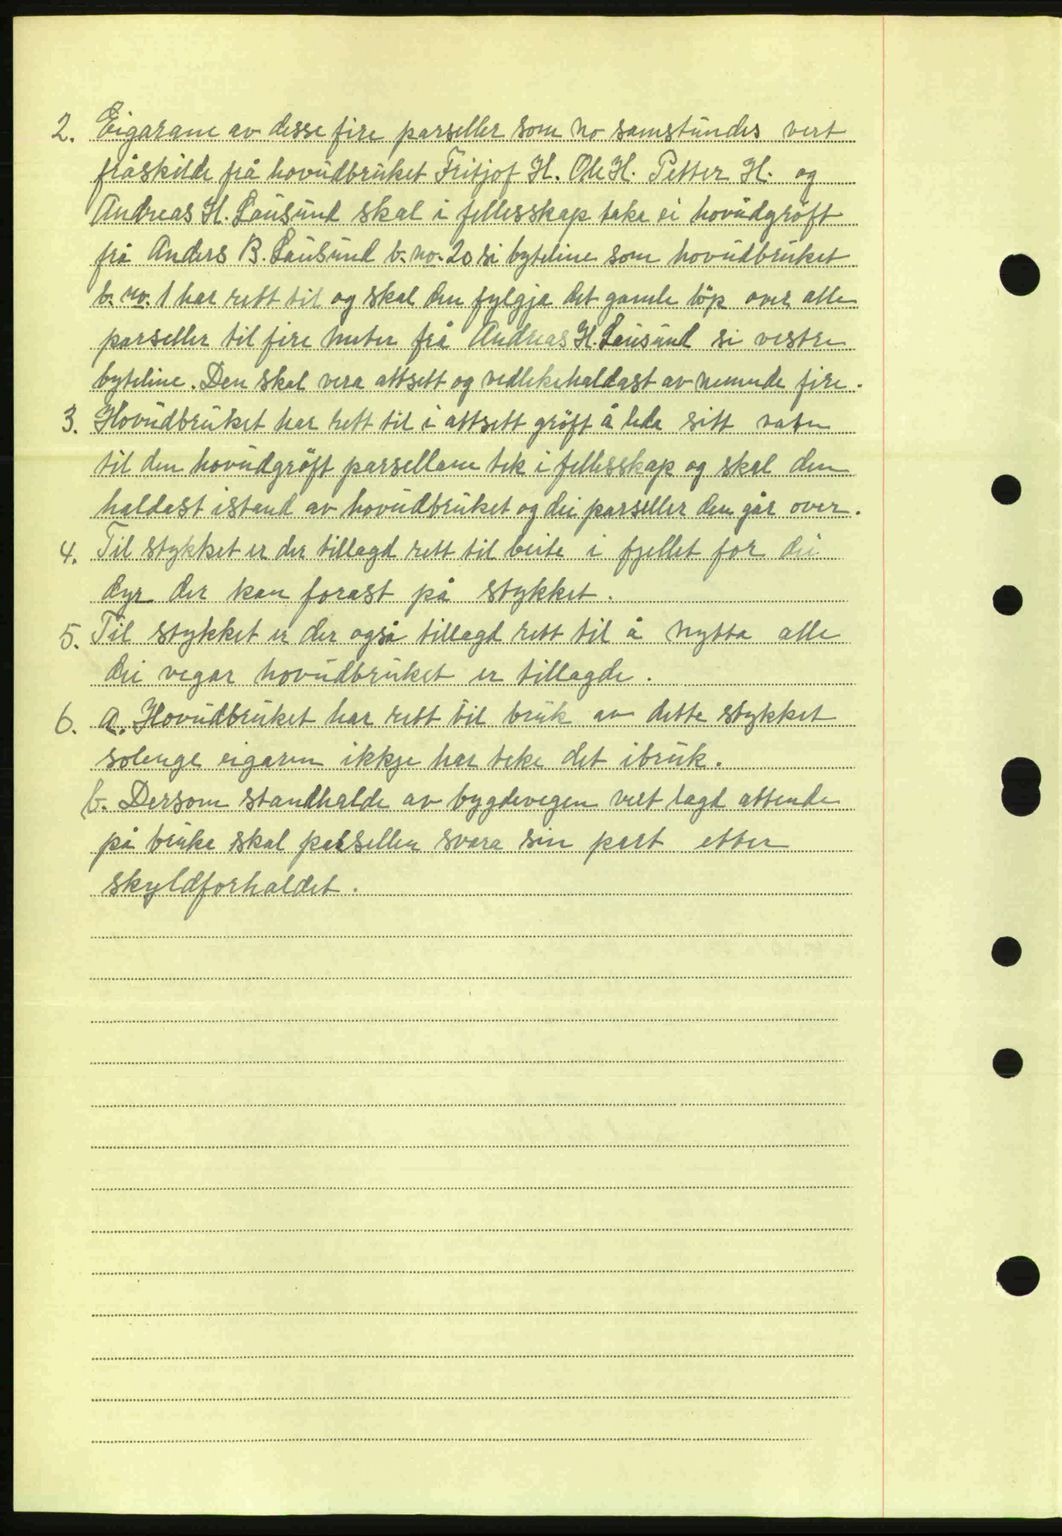 2. Eigarane av desse fire parseller som no samstundes vert
fråskilde frå hovudbruket Fritjof H. Ole H. Petter H. og
Andreas H. Lausund skal i fellesskap take ei hovudgrøft
frå Anders B. Lausund b. no. 20 si byteline som hovudbruket
b. no. 1 har rett til og skal den fylgja det gamle löp over alle
parseller til fire meter frå Andreas H. Lausund si vestre
byteline. Den skal vera attsett og vedlikehaldast av nemnde fire.
3. Hovudbruket har rett til i attsett grøft å leda sitt vatn
til den hovudgrøft parsellane tek i fellesskap og skal den
haldast istand av hovudbruket og dei parseller den går over.
4. Til stykket er der tillagd rett til beite i fjellet for dei
dyr der kan forast på stykket.
5. Til stykket er der også tillagd rett til å nytta alle
dei vegar hovudbruket er tillagde.
6. a. Hovudbruket har rett til bruk av dette stykket
solenge eigaren ikkje har teke det ibruk.
b. Dersom standhalde av bygdevegen vert lagd attende
på bruka skal parsellen svara sin part etter
skyldforhaldet.